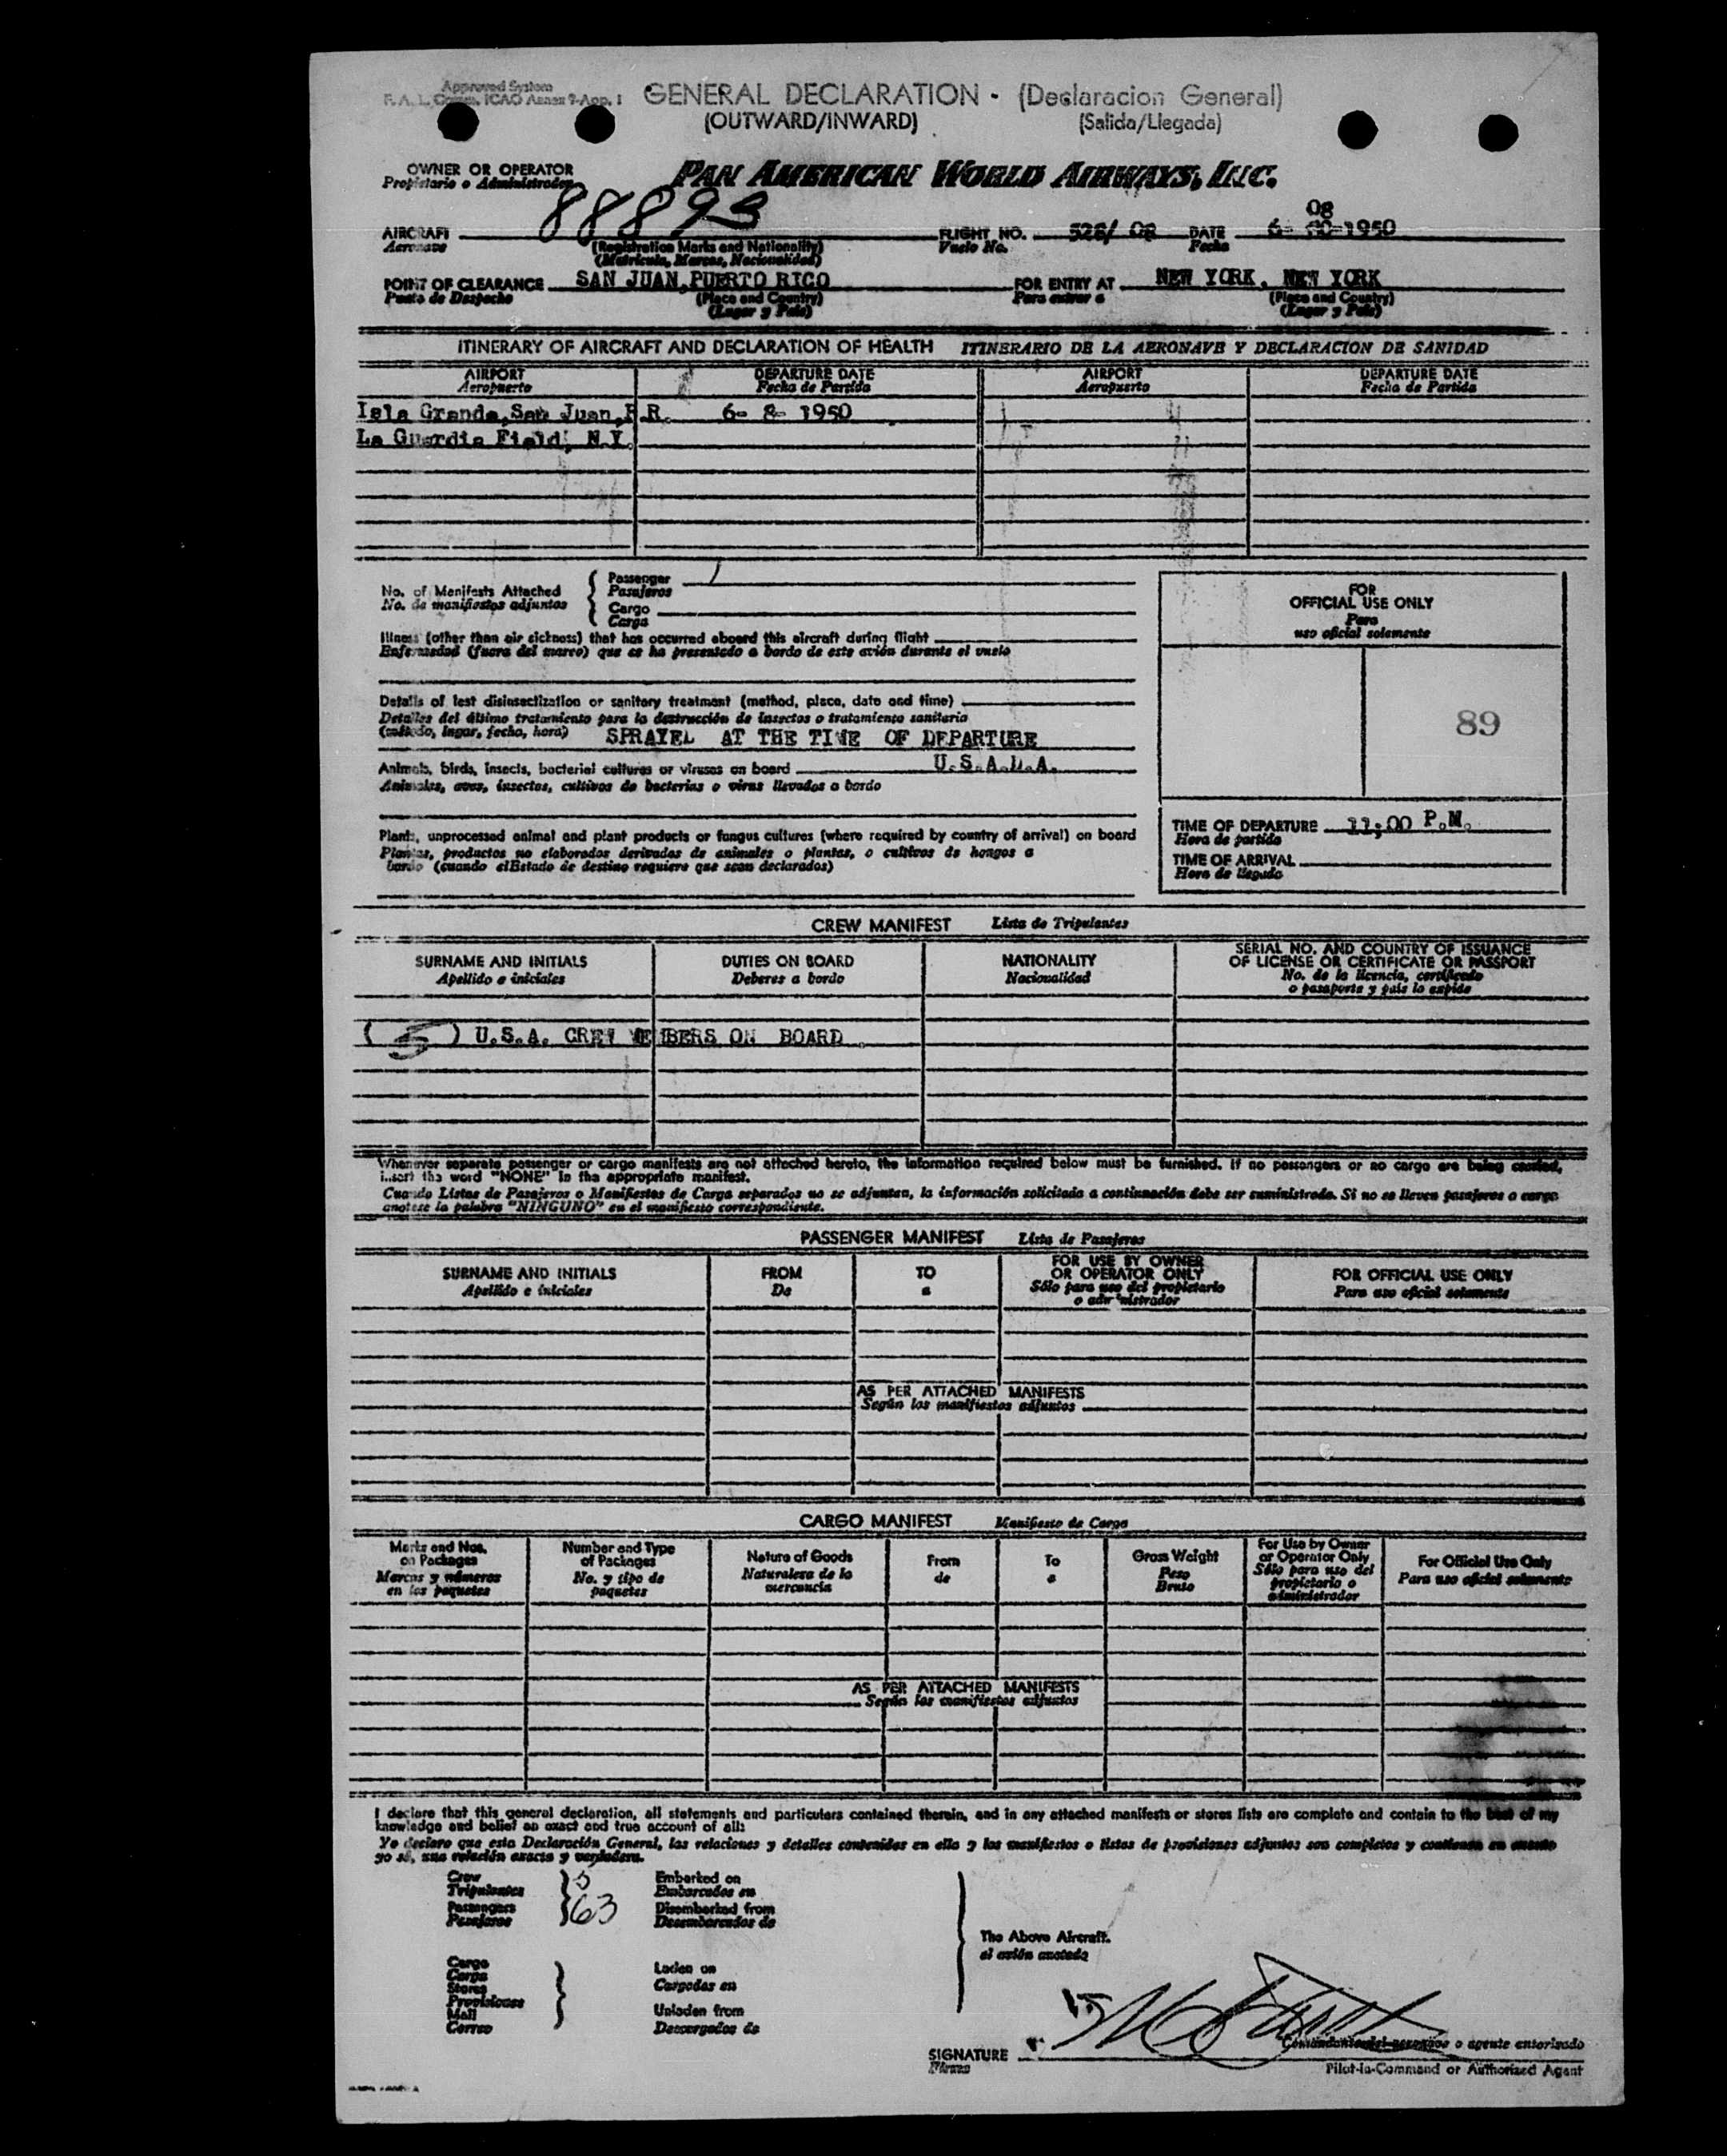 Approved System
F. A. L. Comm. ICAO Annex 9-App. 1
GENERAL DECLARATION - (Declaracion General)
(OUTWARD/INWARD) (Salida/Llegada)
OWNER OR OPERATOR
Propietario o Administrador
PAN AMERICAN WORLD AIRWAYS, INC.
88893
08
AIRCRAFT FLIGHT NO. 528/ 08 DATE 6- 00-1950
Aeronave (Registration Marks and Nationality) Vuelo No. Fecha
(Matricula, Marcas, Nacionalidad)
POINT OF CLEARANCE SAN JUAN, PUERTO RICO FOR ENTRY AT NEW YORK, NEW YORK
Punto de Despacho (Place and Country) Para entrar a (Place and Country)
(Lugar y Pais) (Lugar y Pais)
ITINERARY OF AIRCRAFT AND DECLARATION OF HEALTH ITINERARIO DE LA AERONAVE Y DECLARACION DE SANIDAD
AIRPORT DEPARTURE DATE AIRPORT DEPARTURE DATE
Aeropuerto Fecha de Partida Aeropuerto Fecha de Partida
Isla Grande, San Juan, P.R. 6- 8- 1950
La Guardia Field, N.Y.
No. of Manifests Attached
No. de manifiestos adjuntos
Passenger /
Pasajeros
Cargo
Carga
Illness (other than air sickness) that has occurred aboard this aircraft during flight
Enfermedad (fuera del mareo) que se ha presentado a bordo de este avión durante el vuelo
Details of last disinsectization or sanitary treatment (method, place, date and time)
Detalles del último tratamiento para la destrucción de insectos o tratamiento sanitario
(método, lugar, fecha, hora) SPRAYED AT THE TIME OF DEPARTURE
Animals, birds, insects, bacterial cultures or viruses on board U.S.A.D.A.
Animales, aves, insectos, cultivos de bacterias o virus llevados a bordo
Plants, unprocessed animal and plant products or fungus cultures (where required by country of arrival) on board
Plantas, productos no elaborados derivados de animales o plantas, o cultivos de hongos a
bordo (cuando elEstado de destino requiere que sean declarados)
FOR
OFFICIAL USE ONLY
Para
uso oficial solamente
89
TIME OF DEPARTURE 11;00 P.M.
Hora de partida
TIME OF ARRIVAL
Hora de llegada
CREW MANIFEST Lista de Tripulantes
SURNAME AND INITIALS
Apellido e iniciales
DUTIES ON BOARD
Deberes a bordo
NATIONALITY
Nacionalidad
SERIAL NO. AND COUNTRY OF ISSUANCE
OF LICENSE OR CERTIFICATE OR PASSPORT
No. de la licencia, certificado
o pasaporte y país lo expide
( 5 ) U.S.A. CREW MEMBERS ON BOARD
Whenever separate passenger or cargo manifests are not attached hereto, the information required below must be furnished. If no passengers or no cargo are being carried,
insert the word "NONE" in the appropriate manifest.
Cuando Listas de Pasajeros o Manifiestos de Carga separados no se adjuntan, la información solicitada a continuación debe ser suministrada. Si no se lleven pasajeros o carga
anotese la palabra "NINGUNO" en el manifiesto correspondiente.
PASSENGER MANIFEST Lista de Pasajeros
SURNAME AND INITIALS
Apellido e iniciales
FROM
De
TO
a
FOR USE BY OWNER
OR OPERATOR ONLY
Sólo para uso del propietario
o administrador
FOR OFFICIAL USE ONLY
Para uso oficial solamente
AS PER ATTACHED MANIFESTS
Según los manifiestos adjuntos
CARGO MANIFEST Manifiesto de Carga
Marks and Nos.
on Packages
Marcas y números
en los paquetes
Number and Type
of Packages
No. y tipo de
paquetes
Nature of Goods
Naturaleza de la
mercancia
From
de
To
a
Gross Weight
Peso
Bruto
For Use by Owner
or Operator Only
Sólo para uso del
propietario o
administrador
For Official Use Only
Para uso oficial solamente
AS PER ATTACHED MANIFESTS
Según los manifiestos adjuntos
I declare that this general declaration, all statements and particulars contained therein, and in any attached manifests or stores lists are complete and contain to the best of my
knowledge and belief an exact and true account of all:
Yo declaro que esta Declaración General, las relaciones y detalles contenidos en ella y los manifiestos o listas de provisiones adjuntos son completos y contienen en cuanto
yo sé, una relación exacta y verdadera.
Crew 5 Embarked on
Tripulantes Embarcados en
Passengers 63 Disembarked from
Pasajeros Desembarcados de
The Above Aircraft.
el avión anotado
Cargo
Carga Laden on
Stores Cargados en
Provisiones
Mail Unladen from
Correo Descargados de
Comandante del aeronave o agente autorizado
SIGNATURE
Firma
Pilot-in-Command or Authorized Agent